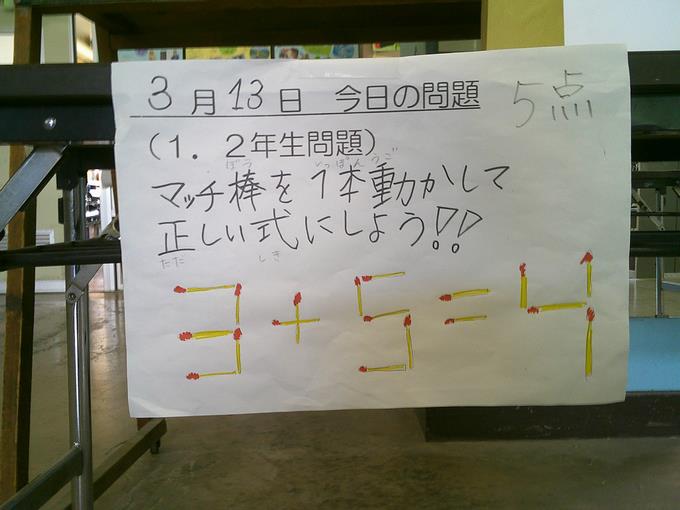 3月13日 今日の問題
5点
（1．2年生問題）
ぼう いっぽんうご
マッチ棒を1本動かして
正しい式にしよう!!
ただ しき
3+5=4